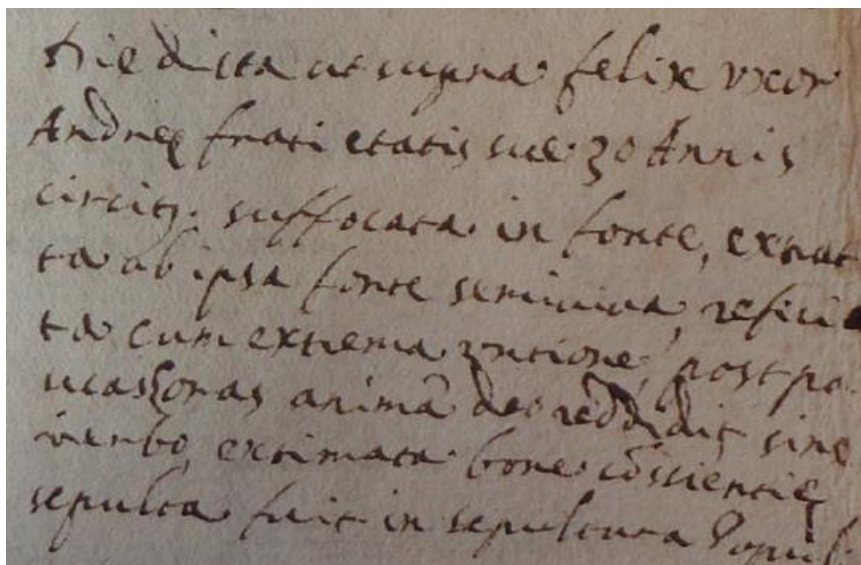 Die dicta ut supra felix uxor
Andreę frati etatis sue 30 Annis
circitꝫ. suffocata in fonte, extrat
ta ab ipsa fonte semiviva, refici
ta cum extrema untione, post pa
ucas horas animā deo reddidit sine
verbo, extimata bone cōssientię
sepulta fuit in sepultura Populi